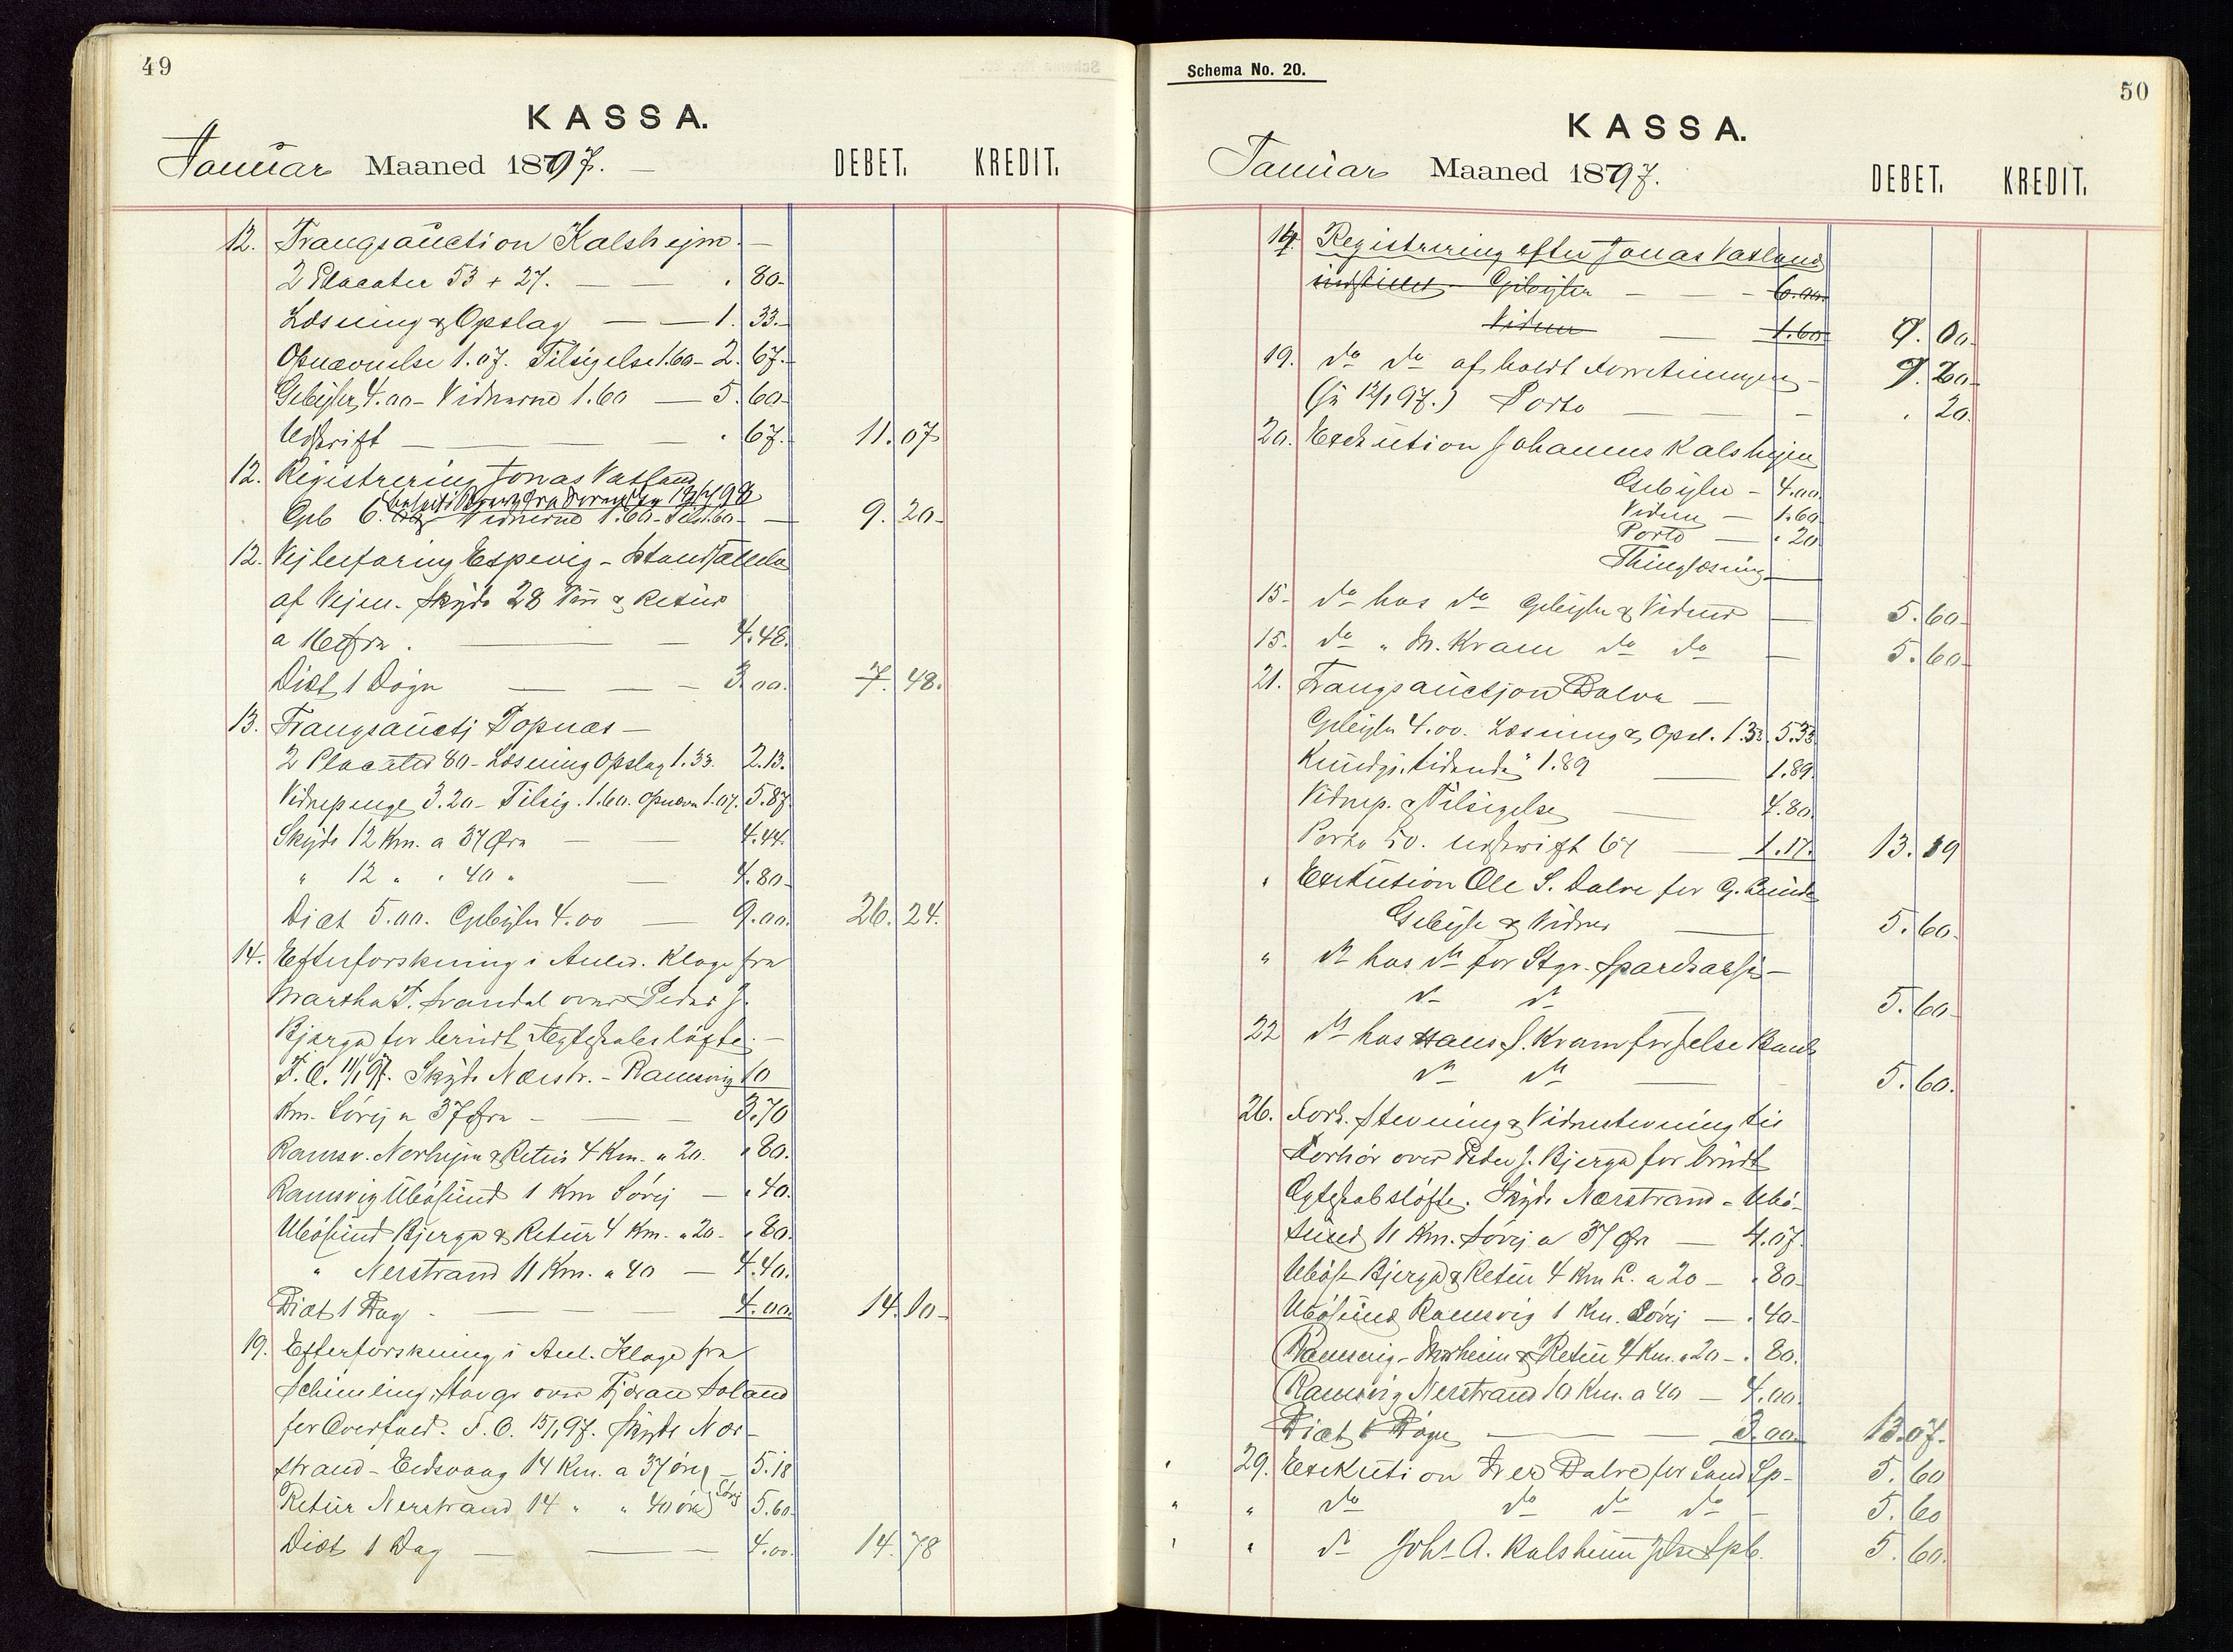 49
KASSA.
Januar Maaned 1897.
DEBET. KREDIT.
12. Trangsauction Kalshejm. —
2 Placater 53 + 27. — — . 80-
Læsning & Opslag — — 1. 33.-
Opnævnelse 1.07. Tilsigelse 1.60 - 2. 67.-
Gebyhr 4.00 - Vidnerne 1.60 — 5. 60-
Udskrift — — — . 67.- 11. 07
12. Registrering Jonas Vatland
Geb 6. Vidnerne 1.60 - Tils 1.60 — 9. 20-
12. Vejbefaring Espevig -
af Vejen. Skyds 28 Km & Retur
a 16 Øre . — — 4.48.
Diæt 1 Døgn — — — 3.00. 7. 48.
13. Trangsauctj Topnæs —
2 Placater 80 - Læsning Opslag 1.33. 2.13.
Vidnepenge 3.20 - Tilsig. 1.60. Opnævn 1.07. 5.87
Skyds 12 Km. a 37 Øre — — 4.44.
" 12 " " 40 " — 4.80-
Diæt 5.00. Gebyhr 4.00 — 9.00. 26. 24.
14. Efterforskning i Anled. Klage fra
Martha T. Svandal over Peder J.
Bjerga for brudt Ægteskabsløfte. —
F. O. 11/1 97. Skyds Nærstr. - Ramsvig 10
Km. Søvej a 37 Øre - — 3.70
Ramsv. Norhejm & Retur 4 Km. a 20. " 80.
Ramsvig Ubøsund 1 Km Søvej — " 40.
Ubøsund Bjerga & Retur 4 Km. a 20 - " 80.
" Nerstrand 11 Km. a 40 — 4.40.
Diæt 1 Dag - — — — 4.00. 14. 10-
19. Efterforskning i Anl. Klage fra
Schimling, Stavgr over Tjeran Soland
for Overfald. F. O. 15/1 97. Skyds Nær-
strand - Eidsvaag 14 Km. a 37 øre — 5.18
Retur Nerstrand 14 " " 40 øre Søvj 5.60
Diæt 1 Dag — — 4.00. 14. 78
Schema No. 20.
50
KASSA.
Januar Maaned 1897.
DEBET. KREDIT.
14. Registrering efter Jonas Vatland
indstillet - Gebyhr — — - 6.00.
Vidner — 1.60- 0. 00-
19. do do afholdt Forretningen - 9. 20-
(jr 12/1 97.) Porto — — - . 20.
20. Exekution Johannes Kalshejm
Gebyhr - 4.00.
Vidner — 1.60
Porto — " 20
Thinglæsning —
15- do hos do Gebyhr & Vidner — 5. 60-
15. do " M. Kram do do — 5. 60-
21. Trangsauctjon Dalva —
Gebyhr 4.00. Læsning & Opsl. 1.33. 5.33.
Kundgj. tidende 1.89 — 1.89.
Vidnep. & Tilsigelse — 4.80.
Porto 50. Udskrift 67 — 1.17. 13. 19
" Exekution Ole S. Dalve for G.
Gebyhr & Vidner — 5. 60-
" do hos do for Stgr. Sparekasse -
do do 5. 60-
22 do hos Hans J. Kram for Jelse Bank
do do — 5. 60.
26. Fork. Stevning & Vidnestevning til
Forhør over Peder J. Bjerga for brudt
Ægteskabsløfte. Skyds Nærstrand - Ubø-
sund 11 Km. Søvej a 37 Øre — 4.07.
Ubøs Bjerga & Retur 4 Km L. a 20 - " 80-
Ubøsund Ramsvig 1 Km. Søvej — . 40-
Ramsvig - Norheim & Retur 4 Km. a 20 - . 80.
Ramsvig Nerstrand 10 Km. a 40 — 4.00.
Diæt 1 Døgn — — 3.00. 13. 07.
29. Exekution Iver Dalve for Sand Sp- 5. 60
" " do do do do - 5. 60
" " do Johs A. Kalsheim Jelse Spb. 5. 60.